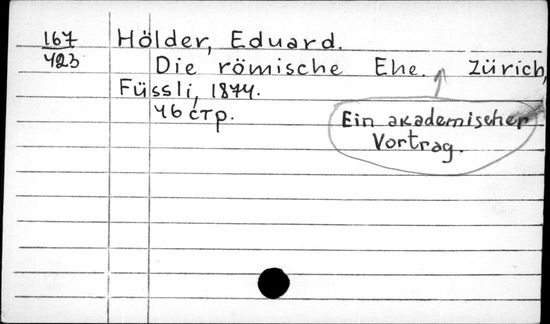 167
423
Hölder, Eduard.
Die römische Ehe. Zürich,
Füssli, 1874.
46 стр.
Ein akademischer
Vortrag.